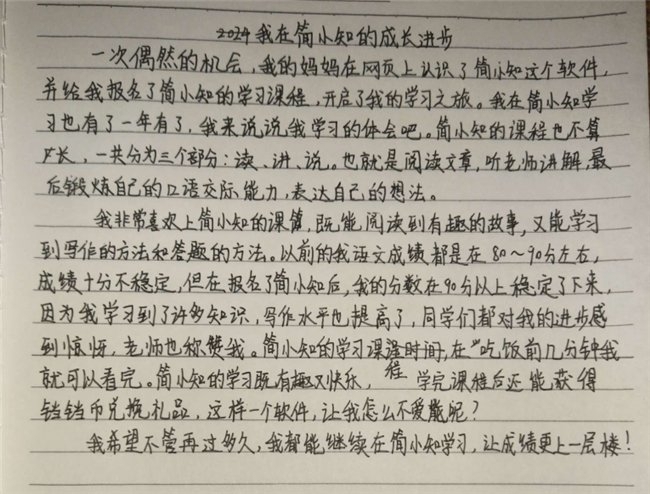 2024我在简小知的成长进步
一次偶然的机会，我的妈妈在网页上认识了简小知这个软件，
并给我报名了简小知的学习课程，开启了我的学习之旅。我在简小知学
习也有了一年有了，我来说说我学习的体会吧。简小知的课程也不算
太长，一共分为三个部分：读、讲、说。也就是阅读文章，听老师讲解，最
后锻炼自己的口语交际能力，表达自己的想法。
我非常喜欢上简小知的课，既能阅读到有趣的故事，又能学习
到写作的方法和答题的方法。以前的我语文成绩都是在80～90分左右，
成绩十分不稳定，但在报名了简小知后，我的分数在90分以上稳定了下来，
因为我学习到了许多知识，写作水平也提高了，同学们都对我的进步感
到惊讶，老师也称赞我。简小知的学习课程时间，在“吃饭前几分钟我
就可以看完。简小知的学习既有趣又快乐，学完课程后还能获得
铛铛币兑换礼品，这样一个软件，让我怎么不爱戴呢？
我希望不管再过多久，我都能继续在简小知学习，让成绩更上一层楼！